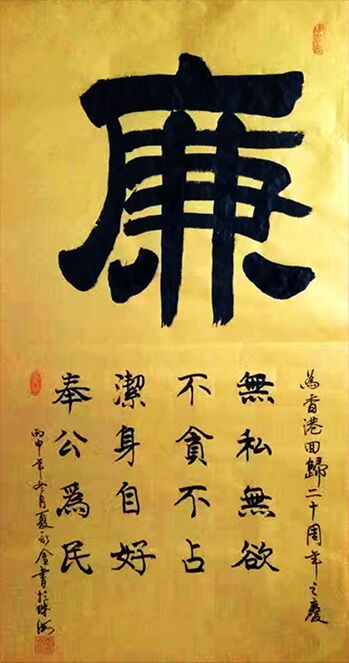 廉
為香港回歸二十周年之慶
無私無欲
不貪不占
潔身自好
奉公為民
丙申年
書於珠海